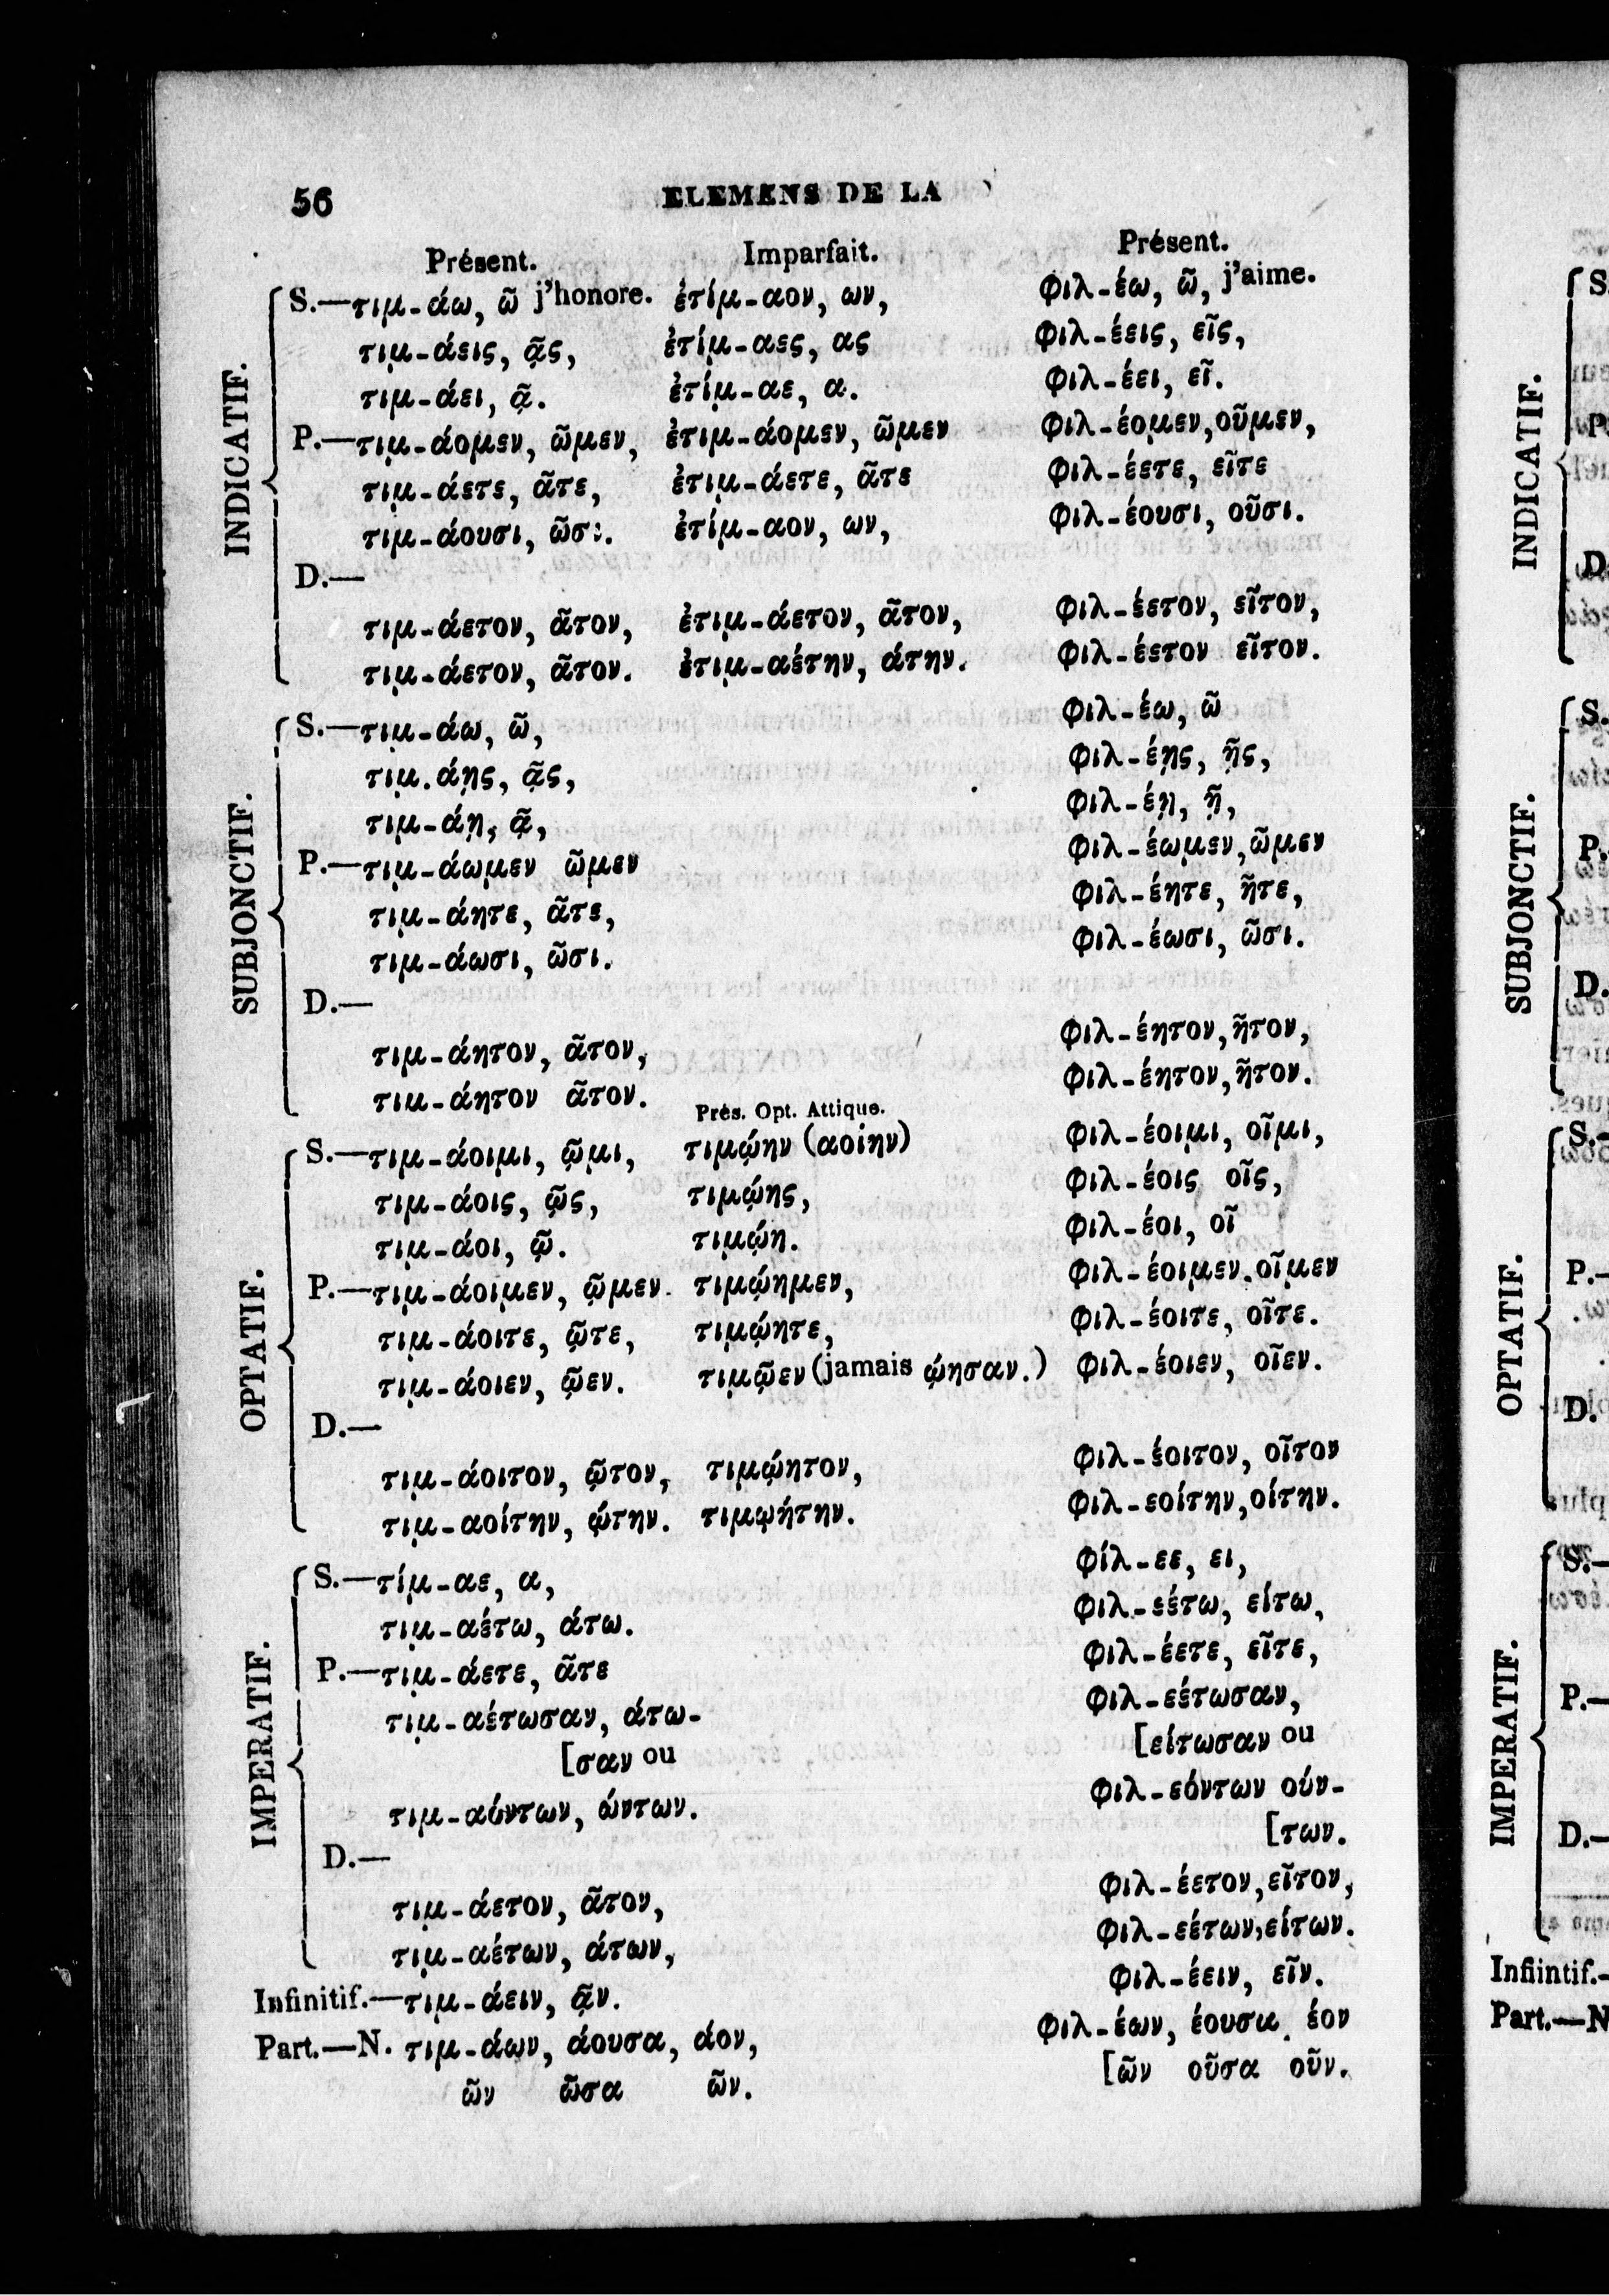 56 ELEMENS DE LA
Présent. Imparfait. Présent.
INDICATIF.
S.—τιμ-άω, ῶ j'honore. ἐτίμ-αον, ων, φιλ-έω, ῶ, j'aime.
τιμ-άεις, ᾷς, ἐτίμ-αες, ας φιλ-έεις, εῖς,
τιμ-άει, ᾷ. ἐτίμ-αε, α. φιλ-έει, εῖ.
P.—τιμ-άομεν, ῶμεν, ἐτιμ-άομεν, ῶμεν φιλ-έομεν, οῦμεν,
τιμ-άετε, ᾶτε, ἐτιμ-άετε, ᾶτε φιλ-έετε, εῖτε
τιμ-άουσι, ῶσι. ἐτίμ-αον, ων, φιλ-έουσι, οῦσι.
D.—
τιμ-άετον, ᾶτον, ἐτιμ-άετον, ᾶτον, φιλ-έετον, εῖτον,
τιμ-άετον, ᾶτον. ἐτιμ-αέτην, άτην. φιλ-έετον εῖτον.
SUBJONCTIF.
S.—τιμ-άω, ῶ, φιλ-έω, ῶ
τιμ.άῃς, ᾷς, φιλ-έῃς, ῇς,
τιμ-άῃ, ᾷ, φιλ-έῃ, ῇ,
P.—τιμ-άωμεν ῶμεν φιλ-έωμεν, ῶμεν
τιμ-άητε, ᾶτε, φιλ-έητε, ῆτε,
τιμ-άωσι, ῶσι. φιλ-έωσι, ῶσι.
D.—
τιμ-άητον, ᾶτον, φιλ-έητον, ῆτον,
τιμ-άητον ᾶτον. φιλ-έητον, ῆτον.
Prés. Opt. Attique.
OPTATIF.
S.—τιμ-άοιμι, ῷμι, τιμῴην (αοίην) φιλ-έοιμι, οῖμι,
τιμ-άοις, ῷς, τιμῴης, φιλ-έοις οῖς,
τιμ-άοι, ῷ. τιμῴη. φιλ-έοι, οῖ
P.—τιμ-άοιμεν, ῷμεν. τιμῴημεν, φιλ-έοιμεν, οῖμεν
τιμ-άοιτε, ῷτε, τιμῴητε, φιλ-έοιτε, οῖτε.
τιμ-άοιεν, ῷεν. τιμῷεν (jamais ῴησαν.) φιλ-έοιεν, οῖεν.
D.—
τιμ-άοιτον, ῷτον, τιμῴητον, φιλ-έοιτον, οῖτον
τιμ-αοίτην, ῴτην. τιμῳήτην. φιλ-εοίτην, οίτην.
IMPERATIF.
S.—τίμ-αε, α, φίλ-εε, ει,
τιμ-αέτω, άτω. φιλ-εέτω, είτω,
P.—τιμ-άετε, ᾶτε φιλ-έετε, εῖτε,
τιμ-αέτωσαν, άτω- φιλ-εέτωσαν,
[σαν ou [είτωσαν ou
τιμ-αόντων, ώντων. φιλ-εόντων ούν-
[των.
D.—
τιμ-άετον, ᾶτον, φιλ-έετον, εῖτον,
τιμ-αέτων, άτων, φιλ-εέτων, είτων.
Infinitif.—τιμ-άειν, ᾷν. φιλ-έειν, εῖν.
Part.—N. τιμ-άων, άουσα, άον, φιλ-έων, έουσα, έον
ῶν ῶσα ῶν. [ῶν οῦσα οῦν.
INDICATIF.
S.
P
D.
SUBJONCTIF.
S.
P.
D.
OPTATIF.
S.-
P.-
D.
IMPERATIF.
S.-
P.—
D.—
Infiintif.-
Part.—N